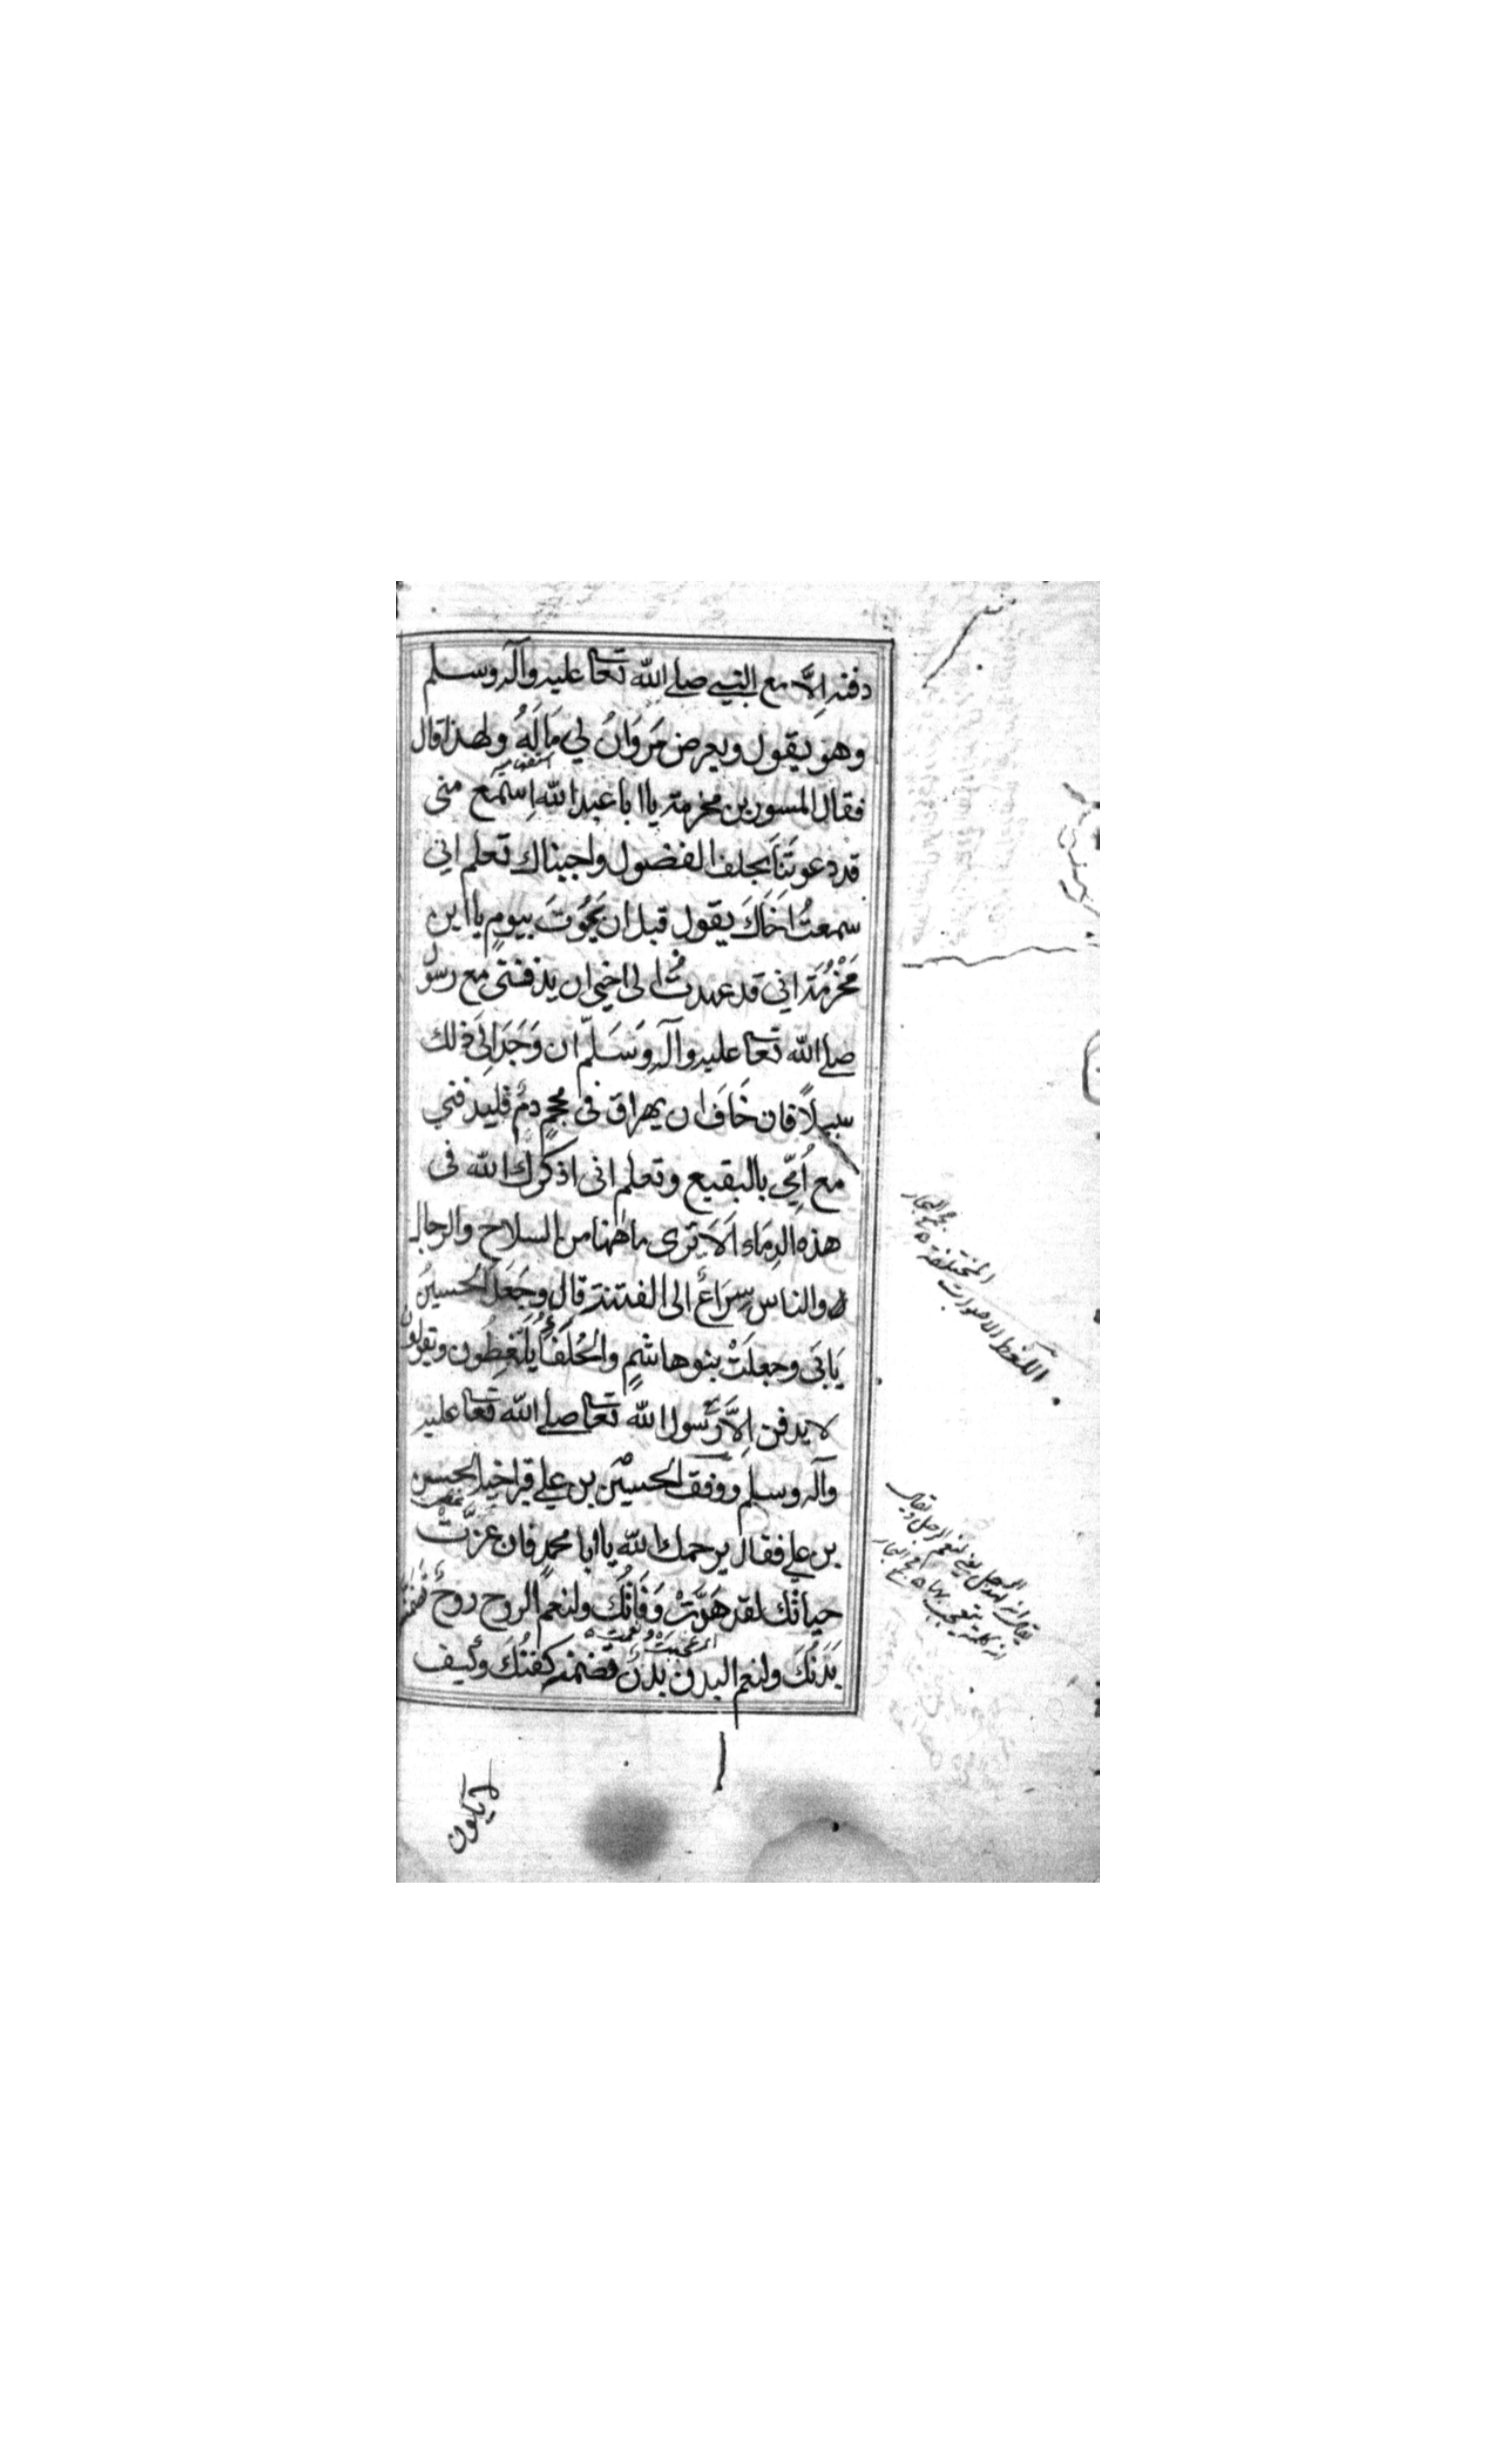 دفنه اِلاَّ مع النبي صلے الله تعا عليه وآله وسلم
وهو يقول ويعرض مَروَانُ لي مَالَهُ ولهذا قال
استفهامية
فقال المسور بن مخرمة يا ابا عبد الله اِسْتَمع مني
قد دعوتَنَا بحلف الفضول واجبناك تعلم اني
سمعتُ اَخَاكَ يقول قبل ان يَمُوتَ بيومٍ يا ابن
مَخْرمَة اني قد عهدتُ الى اخي ان يدفنني مع رسول
صلے الله تعا عليه وآله وَسَلّم ان وَجَدَ اِلَى ذلك
سبيلاً فان خَافَ ان يهراق فى محجمٍ دمٌ فليدفني
مع اُمّي بالبقيع وتعلم انى اذكرك الله فى
هذه الدِمَاء اَلاَ ترى ما ههنا من السلاح والرجال
والناس سِرَاعٌ الى الفتنة قال وجَعَلَ الحسينُ
يَابَى وجعلَتْ بنو هاشمٍ والحُلَفَاُ يَلْغطُون ويقولون
لا يدفن اِلاَّ رَسول الله تعا صلے الله تعا عليه
وآله وسلم ووقف الحسين بن علي قبر اخيه الحسن
بن علي فقال يرحمك الله يا ابا محمد فان عَزَّتْ
حياتك لقد هَدَّتْ وَفَاتُكَ ولنعم الروح روحٌ ضمنه
بَدَنُكَ ولنعم البدن بدن تضمنه كفنُكَ وكيف
لا يكون
اللغط الاصوات
المختلفة
مجمع البحار